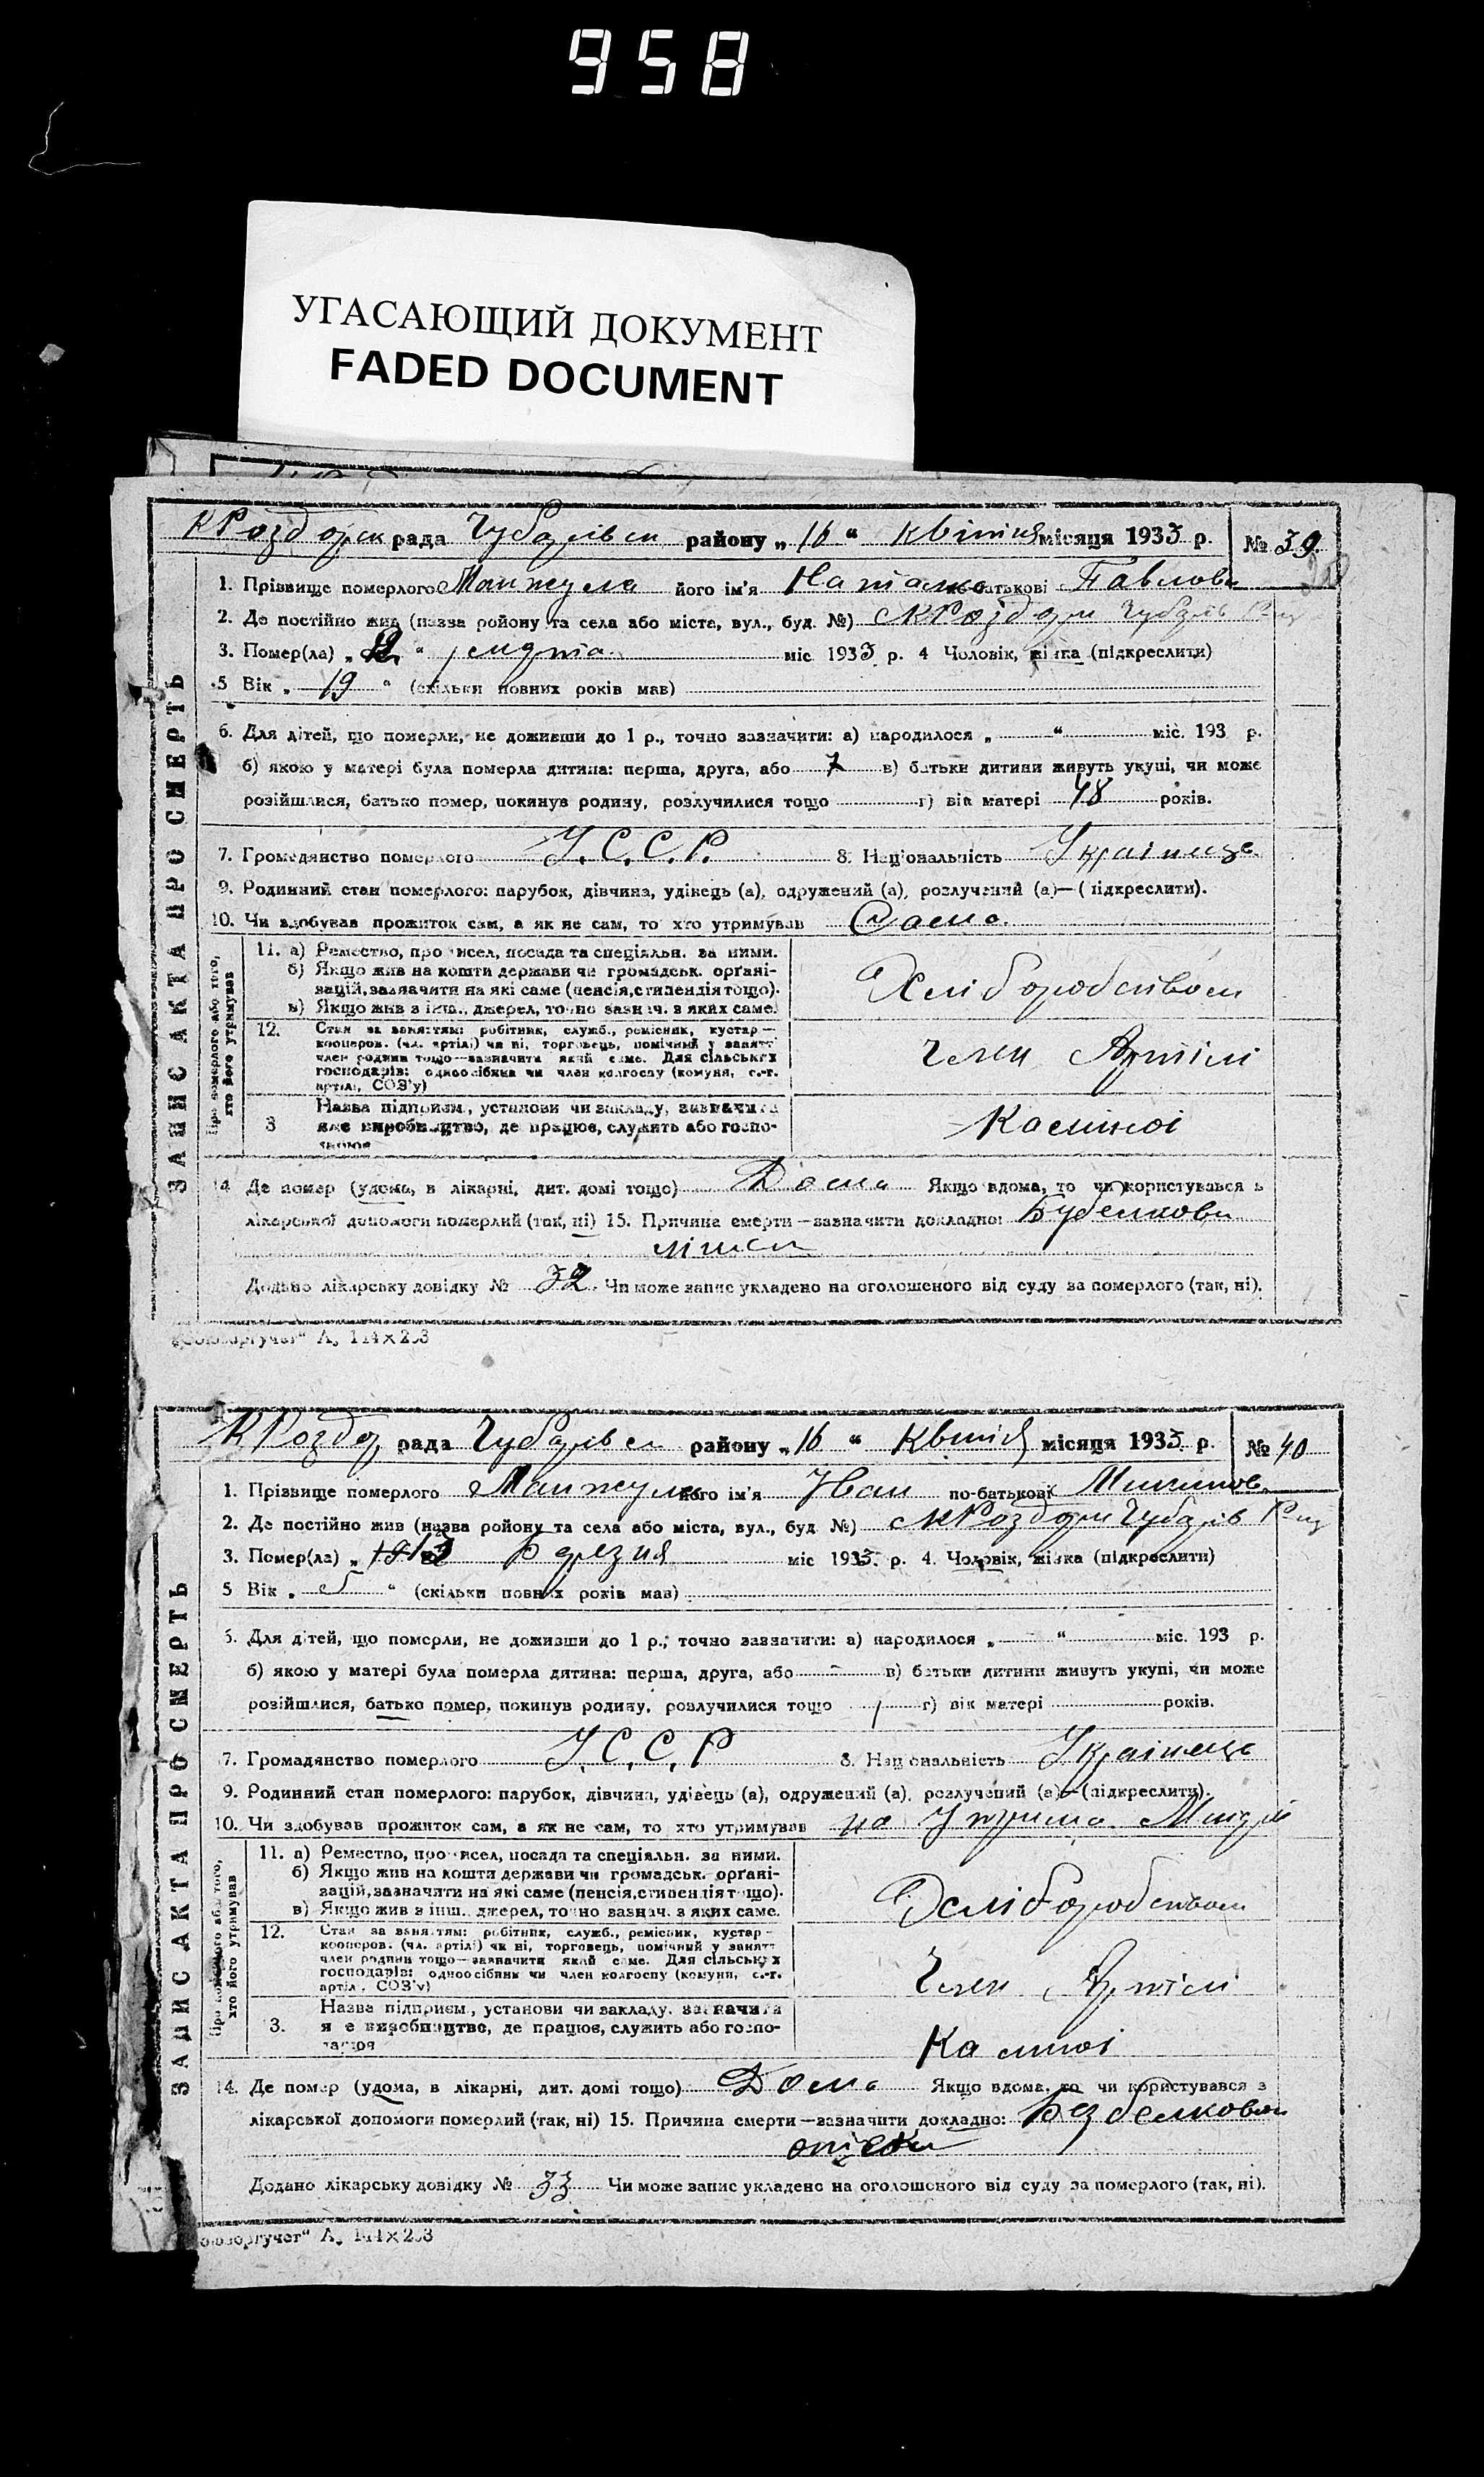 958
УГАСАЮЩИЙ ДОКУМЕНТ
FADED DOCUMENT
рада Чубарівськ району „ 16 “ Квітня місяця 1933 р. № 39.
1. Прізвище померлого Манжула його ім'я Наталка по-батькові Павлова
2. Де постійно жив (назва району та села або міста, вул., буд. №)
3. Помер(ла) „ “ лютого міс 1933 р. 4 Чоловік, жінка (підкреслити)
5 Вік „ 19 “ (скільки повних років мав)
6. Для дітей, що померли, не доживши до 1 р., точно зазначити: а) народилося „ “ міс. 193 р.
б) якою у матері була померла дитина: перша, друга, або 7 в) батьки дитини живуть укупі, чи може
розійшлися, батько помер, покинув родину, розлучилися тощо г) вік матері 48 років.
7. Громадянство померлого У.С.С.Р. 8. Національність Українце
9. Родинний стан померлого: парубок, дівчина, удівець (а), одружений (а), розлучений (а)—(підкреслити).
10. Чи здобував прожиток сам, а як не сам, то хто утримував Сама.
ЗАПИС АКТА ПРО СМЕРТЬ
Про померлого або того, хто його утримував
11. а) Ремество, промисел, посада та спеціяльн. за ними.
б) Якщо жив на кошти держави чи громадськ. орґані-
зацій, зазначити на які саме (пенсія, стипендія тощо).
в) Якщо жив з інш. джерел, точно зазнач. з яких саме.
Хліборобством
12. Стан за заняттям: робітник, служб., ремісник, кустар—
кооперов. (чл. артілі) чи ні, торговець, помічний у занятт
член родини тощо—зазначити який саме. Для сільських
господарів: одноосібник чи член колгоспу (комуни, с.-г.
артілі, СОЗ'у)
Член Артілі
3 Назва підприєм., установи чи закладу, зазначити
яке виробництво, де працює, служить або госпо-
14 Де помер (удома, в лікарні, дит. домі тощо) Дома Якщо вдома, то чи користувався з
лікарської допомоги померлий (так, ні) 15. Причина смерти—зазначити докладно:
Додано лікарську довідку № 32 Чи може запис укладено на оголошеного від суду за померлого (так, ні).
„Союзоргучет“ А₅ 144×203
К Роздор рада Чубарівськ району „ 16 “ Квітня місяця 1933 р. № 40
1. Прізвище померлого Манжула його ім'я Иван по-батькові
2. Де постійно жив (назва району та села або міста, вул., буд №)
3. Помер(ла) „ 13 Березня міс 1933. р. 4. Чоловік, жінка (підкреслити)
5 Вік „ 5 “ (скільки повних років мав)
6. Для дітей, що померли, не доживши до 1 р., точно зазначити: а) народилося „ “ міс. 193 р.
б) якою у матері була померла дитина: перша, друга, або - в) батьки дитини живуть укупі, чи може
розійшлися, батько помер, покинув родину, розлучилися тощо г) вік матері років.
7. Громадянство померлого У.С.С.Р 8. Національність Українець
9. Родинний стан померлого: парубок, дівчина, удівець (а), одружений (а), розлучений (а)—(підкреслити).
10. Чи здобував прожиток сам, а як не сам, то хто утримував на
ЗАПИС АКТА ПРО СМЕРТЬ
Про померлого або того, хто його утримував
11. а) Ремество, промисел, посада та спеціяльн. за ними.
б) Якщо жив на кошти держави чи громадськ. орґані-
зацій, зазначити на які саме (пенсія, стипендія тощо).
в) Якщо жив з інш. джерел, точно зазнач. з яких саме.
Хліборобством
12. Стан за заняттям: робітник, служб., ремісник, кустар—
кооперов. (чл. артілі) чи ні, торговець, помічний у занятт
член родини тощо—зазначити який саме. Для сільських
господарів: одноосібник чи член колгоспу (комуни, с.-г.
артілі, СОЗ'у)
Член Артілі
3. Назва підприєм., установи чи закладу, зазначити
яке виробництво, де працює, служить або госпо-
14. Де помер (удома, в лікарні, дит. домі тощо) Дома Якщо вдома, то чи користувався з
лікарської допомоги померлий (так, ні) 15. Причина смерти—зазначити докладно: Без белкового
Додано лікарську довідку № 33 Чи може запис укладено на оголошеного від суду за померлого (так, ні).
оюзоргучет“ А₅ 144×203